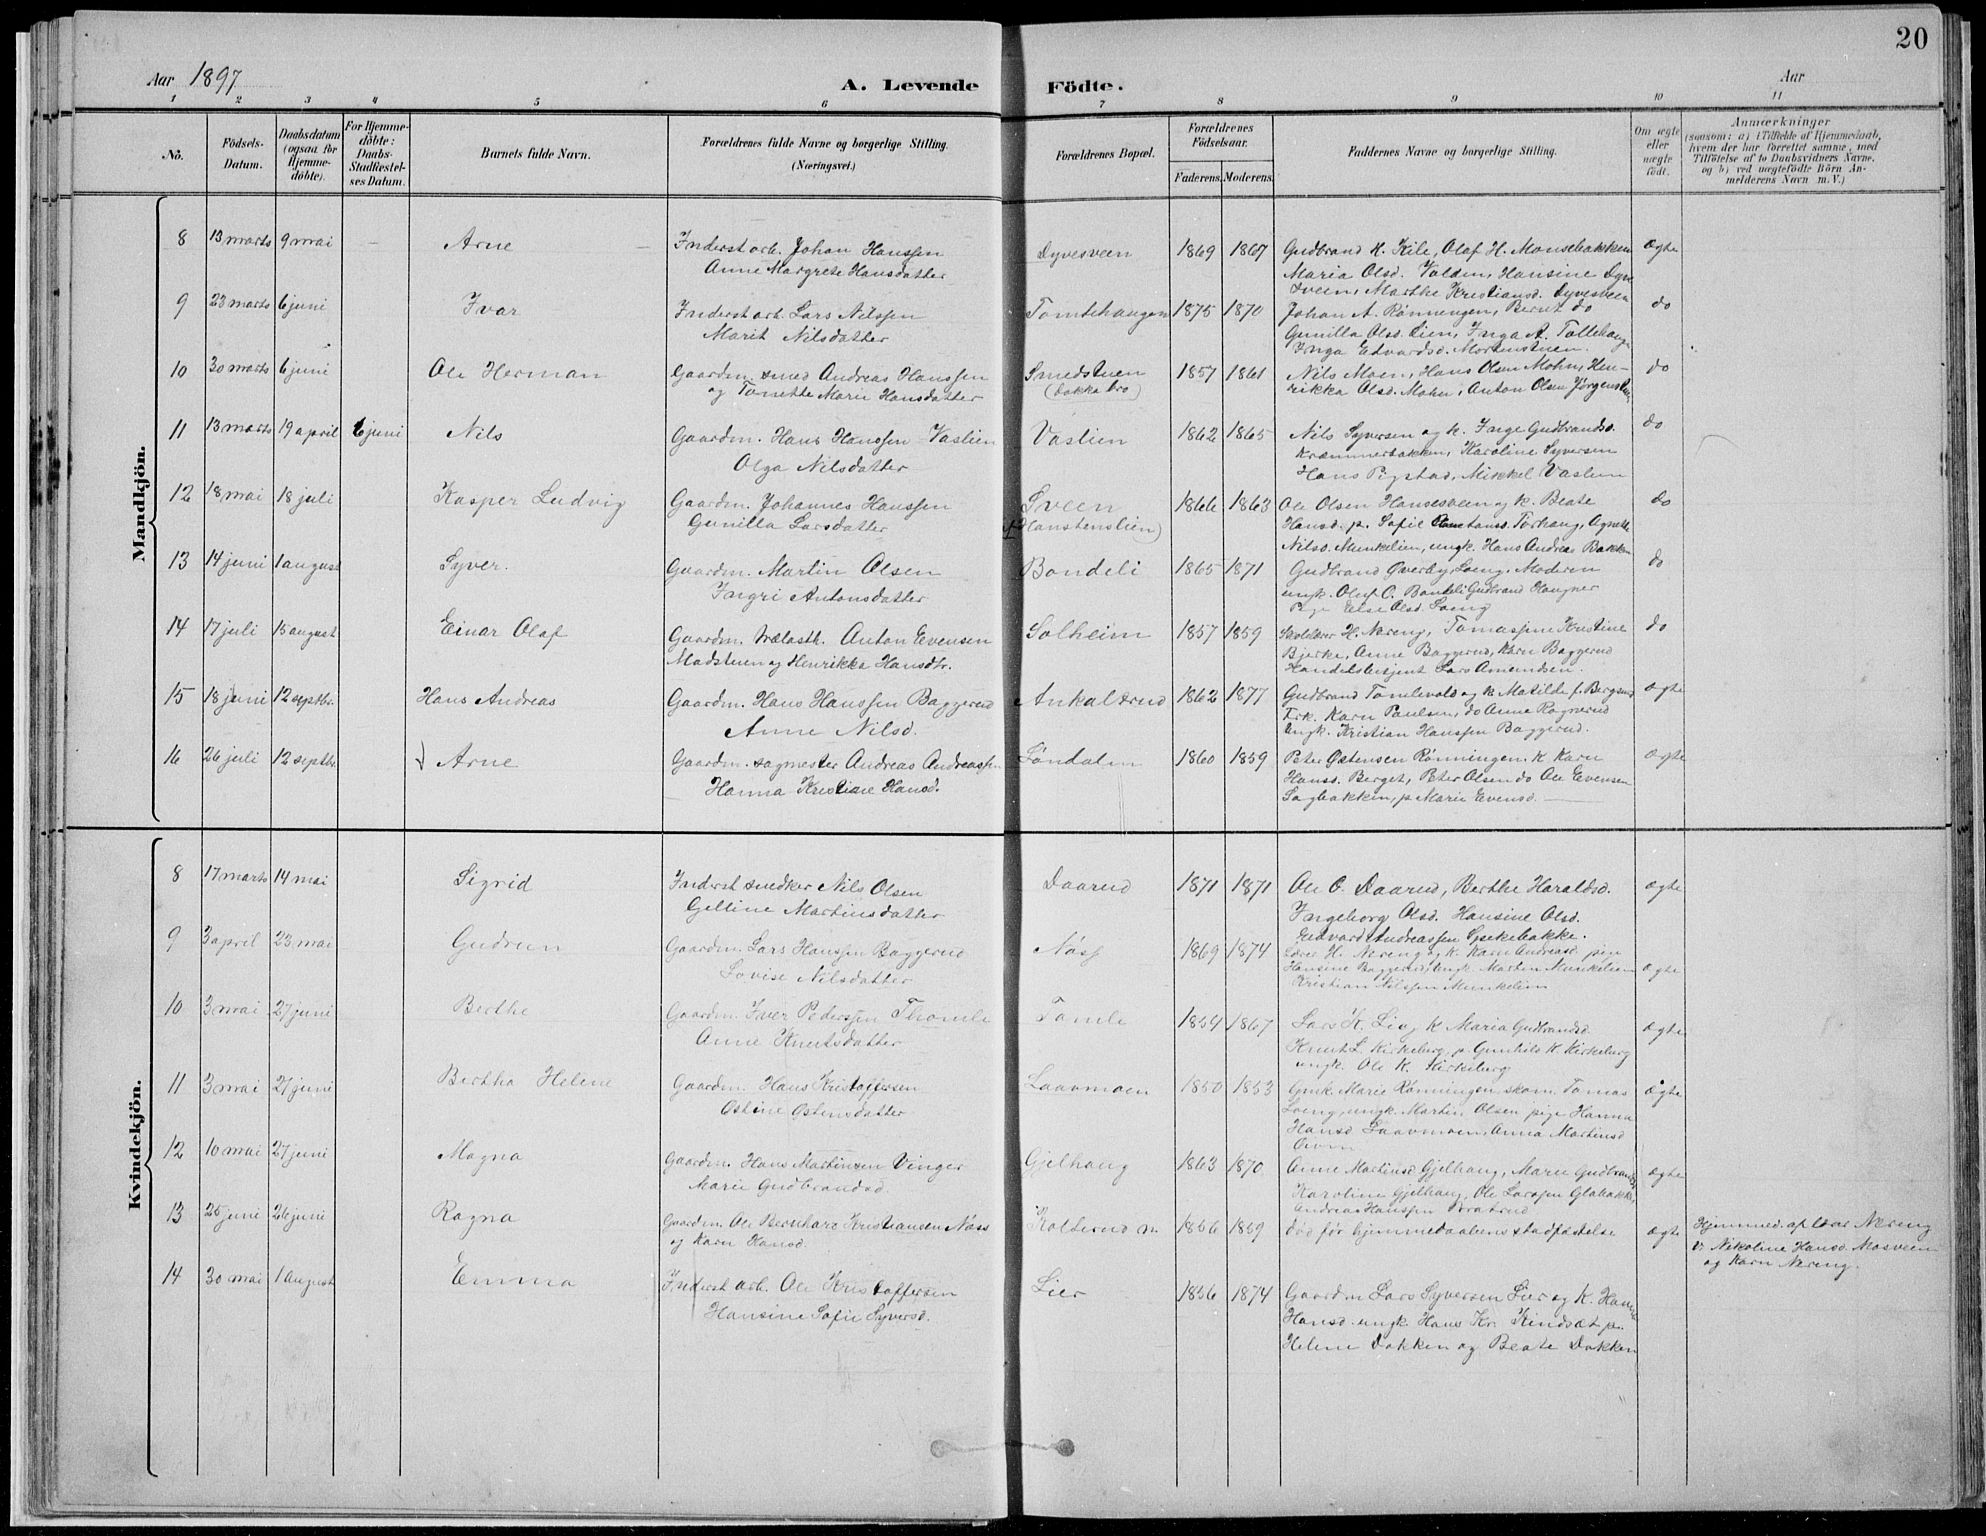 20
Aar 1897
A. Levende Födte.
Aar
1 2 3 4 5 6 7 8 9 10 11
No.
Födsels-Datum.
Daabsdatum (ogsaa for Hjemmedöbte).
For Hjemmedöbte: Daabs-Stadfæstelses Datum.
Barnets fulde Navn.
Forældrenes fulde Navne og borgerlige Stilling. (Næringsvei.)
Forældrenes Bopæl.
Forældrenes Födselsaar.
Faderens. Moderens.
Faddernes Navne og borgerlige Stilling.
Om ægte eller uægte födt.
Anmærkninger
(saasom: a) i Tilfælde af Hjemmedaab, hvem der har forrettet samme, med Tilföielse af to Daabsvidners Navne, og b) ved uægtefödte Börn Anmelderens Navn m. V.)
Mandkjön.
8 13 marts 9 mai - Arne - Inderst arb. Johan Hanssen Dyvesveen 1869 1867 Gudbrand H. Kile, Olaf H. Monsebakken ægte
Anne Margrete Hansdatter Maria Olsd. Volden, Hansine Dyve
sveen, Marthe Kristiansd. Dyvesveen
9 23 marts 6 juni Ivar Inderst arb. Lars Nilssen Tomtehaugen 1875 1870 Johan A. Rønningen, Bernt do do
Marit Nilsdatter Gunilla Olsd. Lien, Inga A. Tollehaugen
Inga Edvardsd. Mortenstuen.
10 30 marts 6 juni Ole Herman Gaardm. smed Andreas Hanssen Smedstuen 1857 1861 Nils Moen, Hans Olsen Mohn, Hen- do
og Tonette Marie Hansdatter (Dokka bro) rikka Olsd. Mohn, Anton Olsen Jørgenstuen
11 13 marts 19 april 6 juni Nils Gaardm. Hans Hanssen Vastien Vastien 1862 1865 Nils Syversen og k. Inge Gudbrandsd. do
Olga Nilsdatter Kræmmerbakken, Karoline Syversen
Hans Pigstad, Mikkel Vastien
12 18 mai 18 juli Kasper Ludvig Gaardm. Johannes Hanssen Sveen 1866 1863 Ole Olsen Hansesveen og k. Beate do
Gunilla Larsdatter (Hanstenslien) Hansd. p. Sofie Torhaug, Agnette
Nilsd. Munkelien, ungk. Hans Andreas Bakken
13 14 juni 1 august Syver. Gaardm. Martin Olsen Bondeli 1865 1871 Gudbrand Øverby, Loeng. Moderen do
Ingri Antonsdatter ungk. Oluf O. Bondeli Gudbrand Haugner
Pige Else Olsd. Loeng
14 17 juli 15 august Einar Olaf Gaardm. Anton Evensen Solheim 1857 1859 Skolelærer H. Nereng, Tomassine Kristine do
Madstuen og Henrikka Hansdtr. Bjerke, Anne Baggerud, Karn Baggerud
Handelsbetjent Lars Amundsen.
15 18 juni 12 septbr. Hans Andreas Gaardm. Hans Hanssen Baggerud Ankaltrud 1862 1877 Gudbrand Tomlevold og k. Matilde f. Bergsund ægte
Anne Nilsd. Frk. Karn Paulsen, do Anne Rognerud
Ungk. Kristian Hanssen Baggerud.
16 26 juli 12 septbr. Arne Gaardm. sagmester Andreas Andreassen Søndalen 1860 1859 Peter Østensen Rønningen. K Karn ægte
Hanna Kristine Hansd. Hansd. Berget, Peter Olsen do Ole Evensen
Sagbakken, p Marie Evensd.
Kvindekjön.
8 17 marts 14 mai Sigrid Inderst snedker Nils Olsen Daarud 1871 1871 Ole O. Daarud, Berthe Haraldsd. ægte
Gelline Martinsdatter Ingeborg Olsd. Hansine Olsd.
Edvard Andreassen
9 3 april 23 mai Gudrun Gaardm. Lars Hanssen Baggerud Nøss 1869 1874 Lærer H. Nereng og k. Karn Andreasd. pige
Lovise Nilsdatter Hansine Baggerud, ungk. Martin Munkelien ægte
Kristian Nilssen Munkelien
10 3 mai 27 juni Berthe Gaardm. Iver Pederssen Thomle Tomle 1854 1867 Lars K. Lie, k Maria Gudbrandsd. ægte
Anne Knutsdatter Knut L. Kirkeberg, p. Gunhild K. Kirkeberg
ungk. Ole K. Kirkeberg
11 3 mai 27 juni Bertha Helene Gaardm. Hans Kristoffersen Laavmoen 1850 1853 Gmk. Marie Rønningen, skom. Tomas ægte
Ostine Ostensdatter Loeng, ungk. Martin Olsen pige Hanna
Hansd. Laavmoen, Anna Martinsd
12 10 mai 27 juni Magna Gaardm. Hans Martinsen Vinger Gjelhaug 1863 1870 Anne Martinsd Gjelhaug, Marie Gudbrandsd ægte
Marie Gudbrandsd. Karoline Gjelhaug, Ole Larssen Glæbakk
Andreas Hanssen
13 25 juni 26 juni Ragna Gaardm. Ole Bernhard Kristiansen Næss Kolterud n. 1856 1859 Død før hjemmedaabens stadfæstelse ægte Hjemmed. af Lær Nereng
og Karn Hansd. v. Nikoline Hansd. Mosveen
og Karn Nereng.
14 30 mai 1 august Emma Inderst arb. Ole Kristoffersen Lier 1856 1874 Gaardm Lars Syversen Lier og K. Hanna
Hansine Sofie Syversd. Hansd. ungk. Hans Kr. Kindsæt p.
Helene Dokken og Beate Dokken